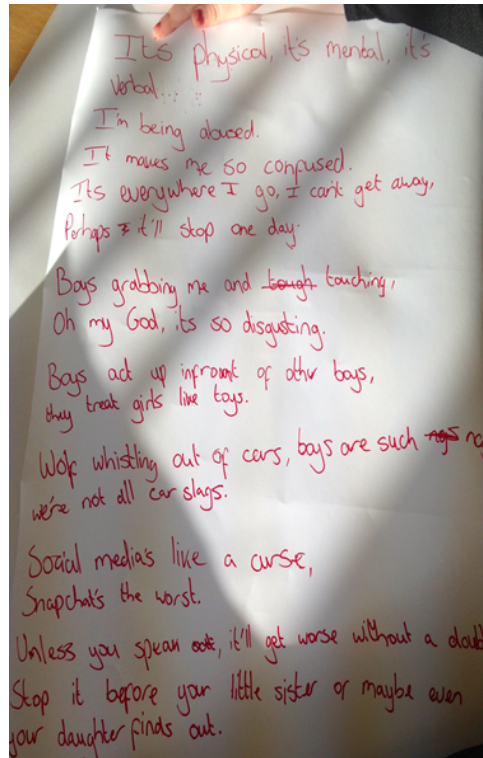 Its physical, it's mental, it's
verbal...
I'm being abused.
It makes me so confused.
Its everywhere I go, I can't get away,
Perhaps I it'll stop one day.
Boys grabbing me and tough touching,
Oh my God, its so disgusting.
Boys act up infront of other boys,
they treat girls like toys.
Wolf whistling out of cars, boys are such
we're not all car slags.
Social media's like a curse,
Snapchat's the worst.
Unless you speak out, it'll get worse without a doubt
Stop it before your little sister or maybe even
your daughter finds out.